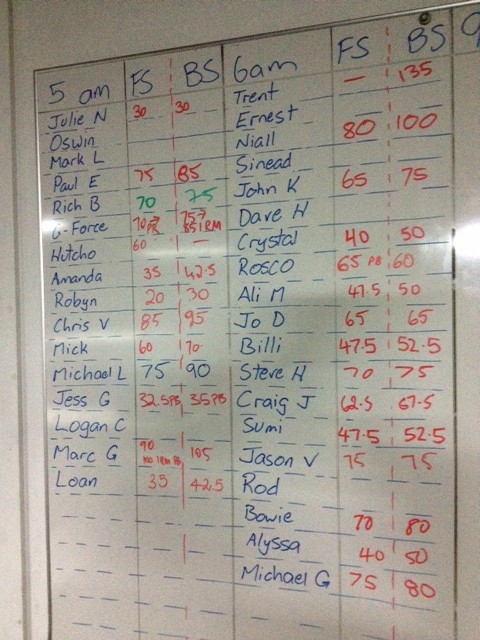 5 am FS BS
Julie N 30 30
Oswin
Mark L
Paul E 75 85
Rich B 70 75
G-Force 70→ PB 75→ 85 1RM
Hutcho 60 —
Amanda 35 42.5
Robyn 20 30
Chris V 85 95
Mick 60 70
Michael L 75 90
Jess G 32.5PB 35PB
Logan C
Marc G 90 105
Loan 35 42.5
6am FS BS
Trent — 135
Ernest
Niall 80 100
Sinead
John K 65 75
Dave H
Crystal 40 50
Rosco 65 PB 60
Ali M 47.5 50
Jo D 65 65
Billi 47.5 52.5
Steve H 70 75
Craig J 62.5 67.5
Sumi 47.5 52.5
Jason V 75 75
Rod
Bowie 70 80
Alyssa 40 50
Michael G 75 80